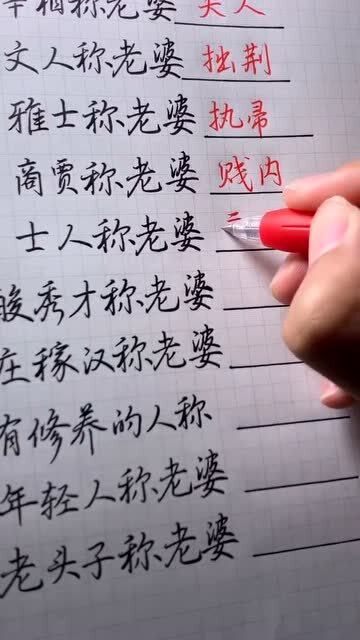 宰相称老婆 夫人
文人称老婆 拙荆
雅士称老婆 执帚
商贾称老婆 贱内
士人称老婆
酸秀才称老婆
庄稼汉称老婆
有修养的人称
年轻人称老婆
老头子称老婆